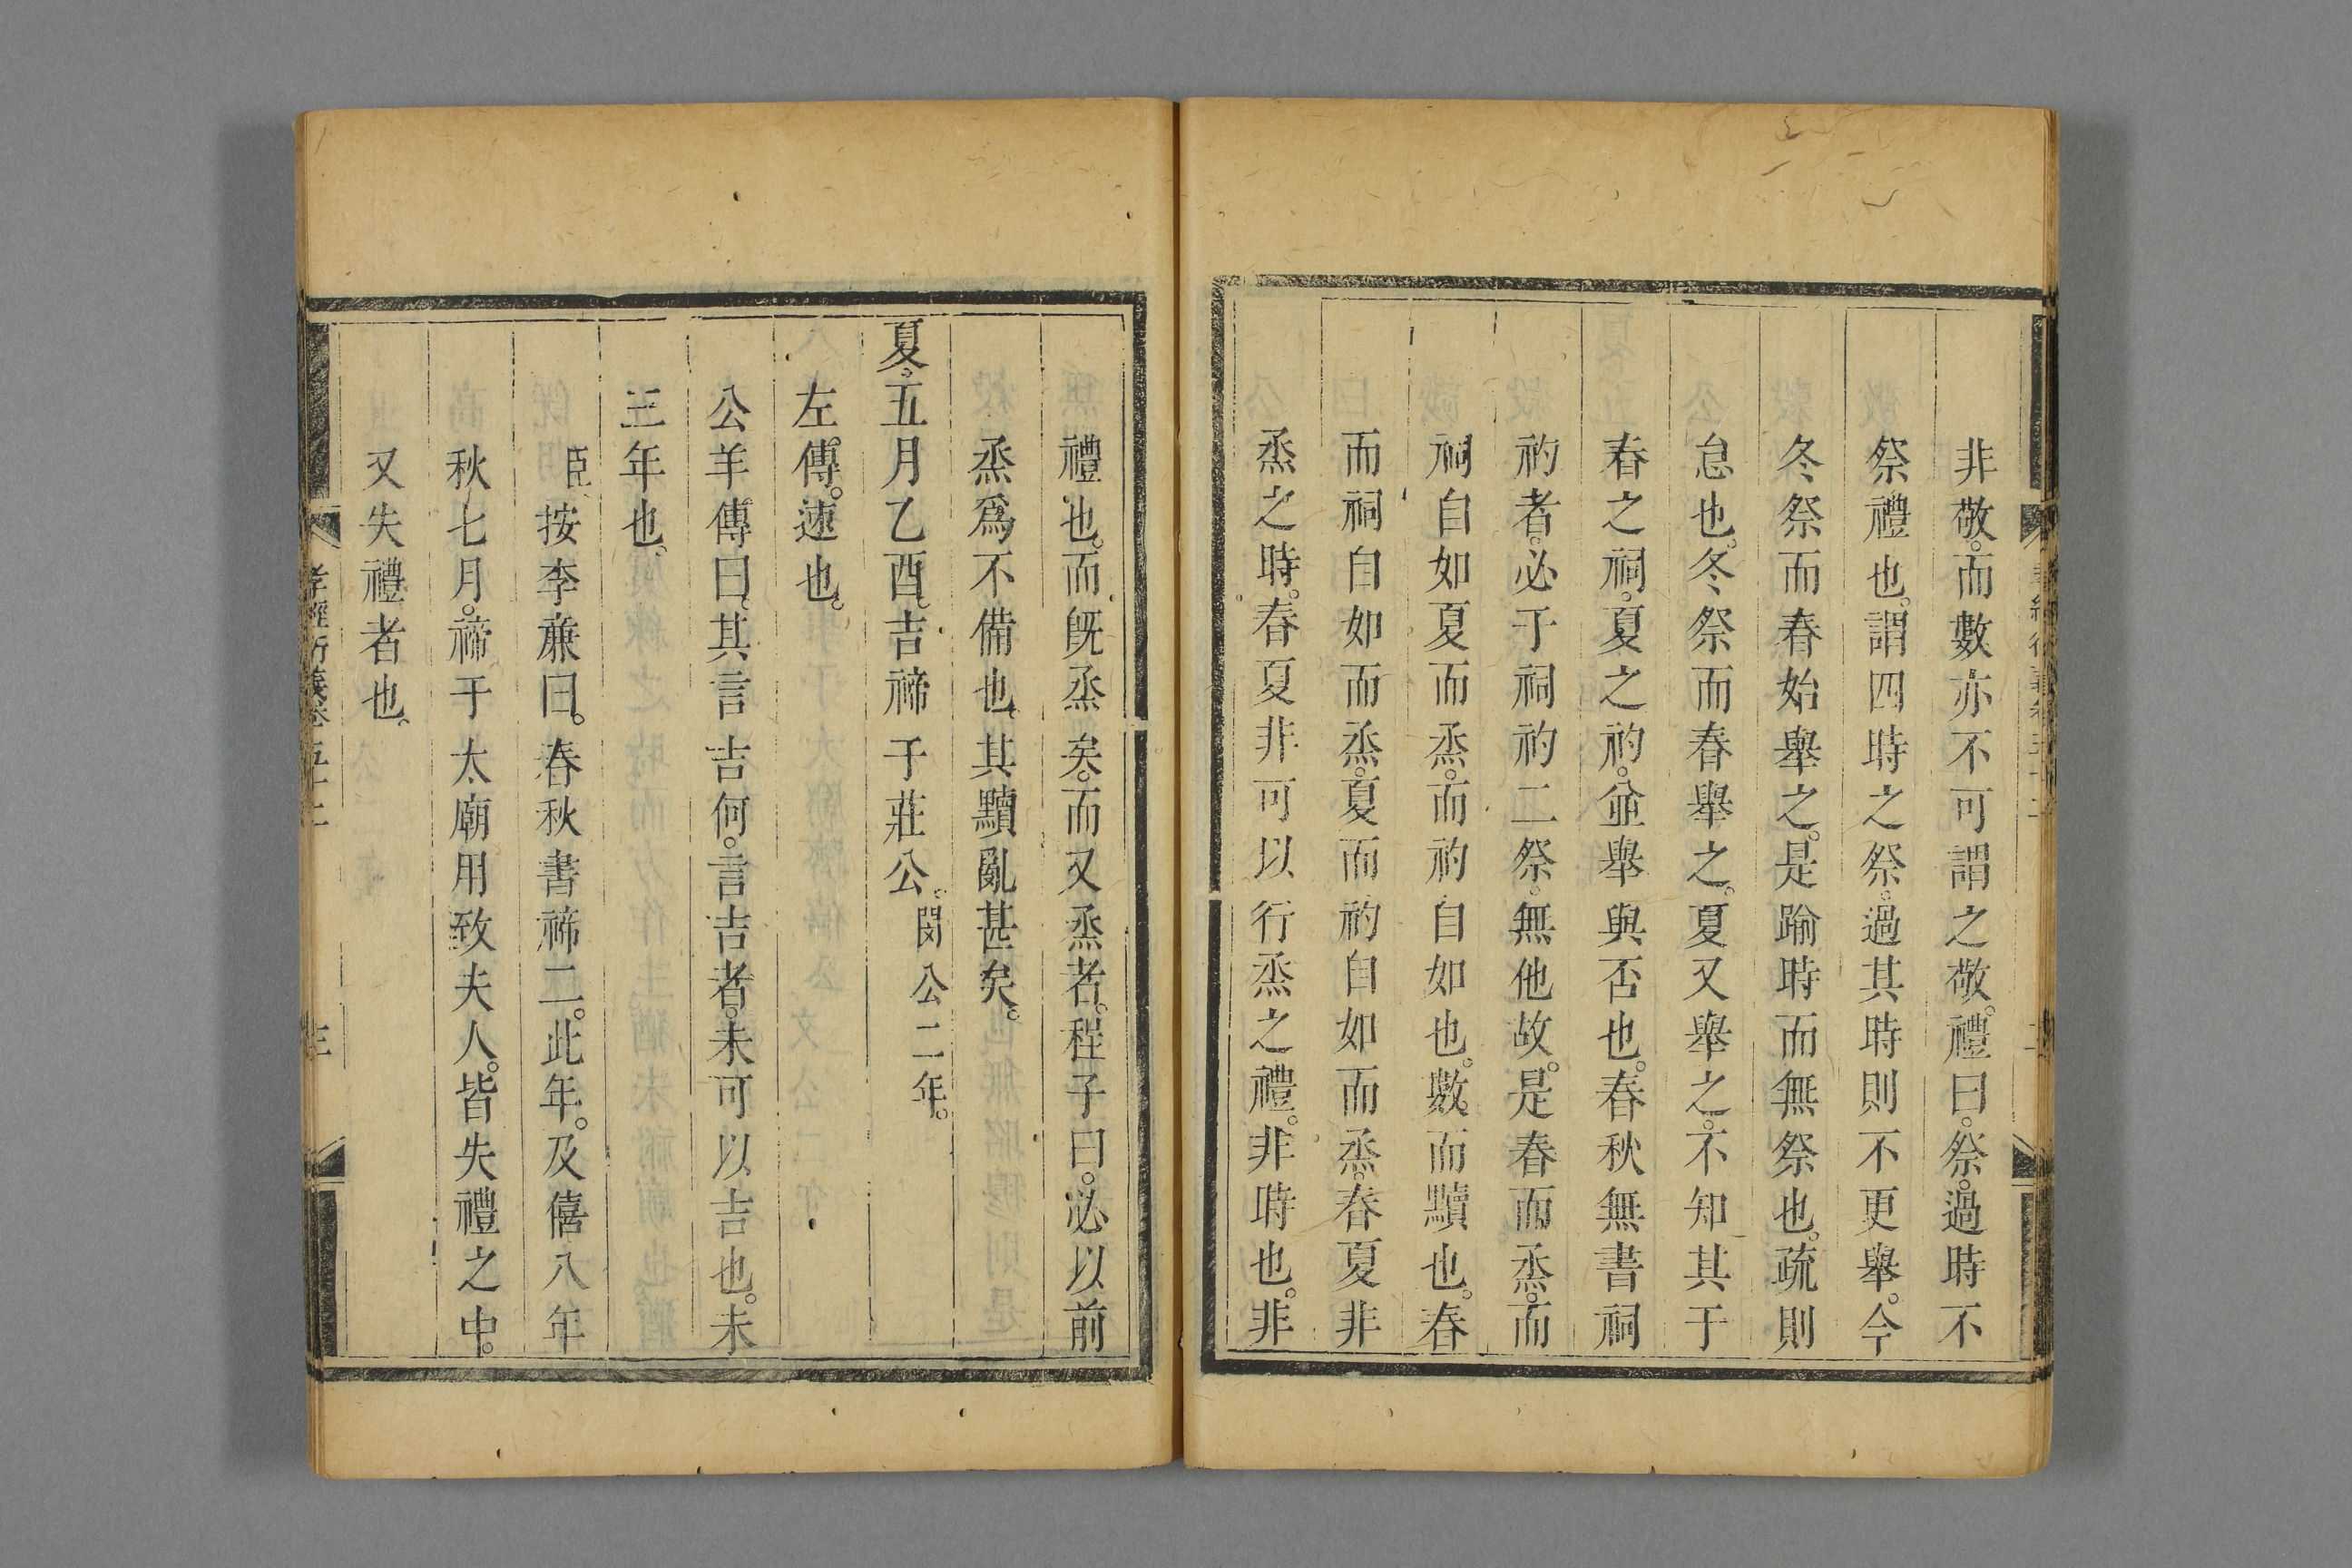 非敬。而數亦不可謂之敬。禮曰。祭。過時不
祭禮也。謂四時之祭。過其時則不更舉。今
冬祭而春始舉之。是踰時而無祭也。疏則
怠也。冬祭而春舉之。夏又舉之。不知其于
春之祠。夏之礿。並舉與否也。春秋無書祠
礿者。必于祠礿二祭。無他故。是春而烝。而
祠自如夏而烝。而礿自如也。數而黷也。春
而祠自如而烝。夏而礿自如而烝。春夏非
烝之時。春夏非可以行烝之禮。非時也。非
禮也。而旣烝矣。而又烝者。程子曰。必以前
烝爲不備也。其黷亂甚矣。
夏。五月乙酉。吉禘于莊公。閔公二年。
左傳。速也。
公羊傳曰。其言吉何。言吉者。未可以吉也。未
三年也。
臣按李廉曰。春秋書禘二。此年。及僖八年
秋七月。禘于太廟用致夫人。皆失禮之中。
又失禮者也。
孝經衍義卷五十二
三